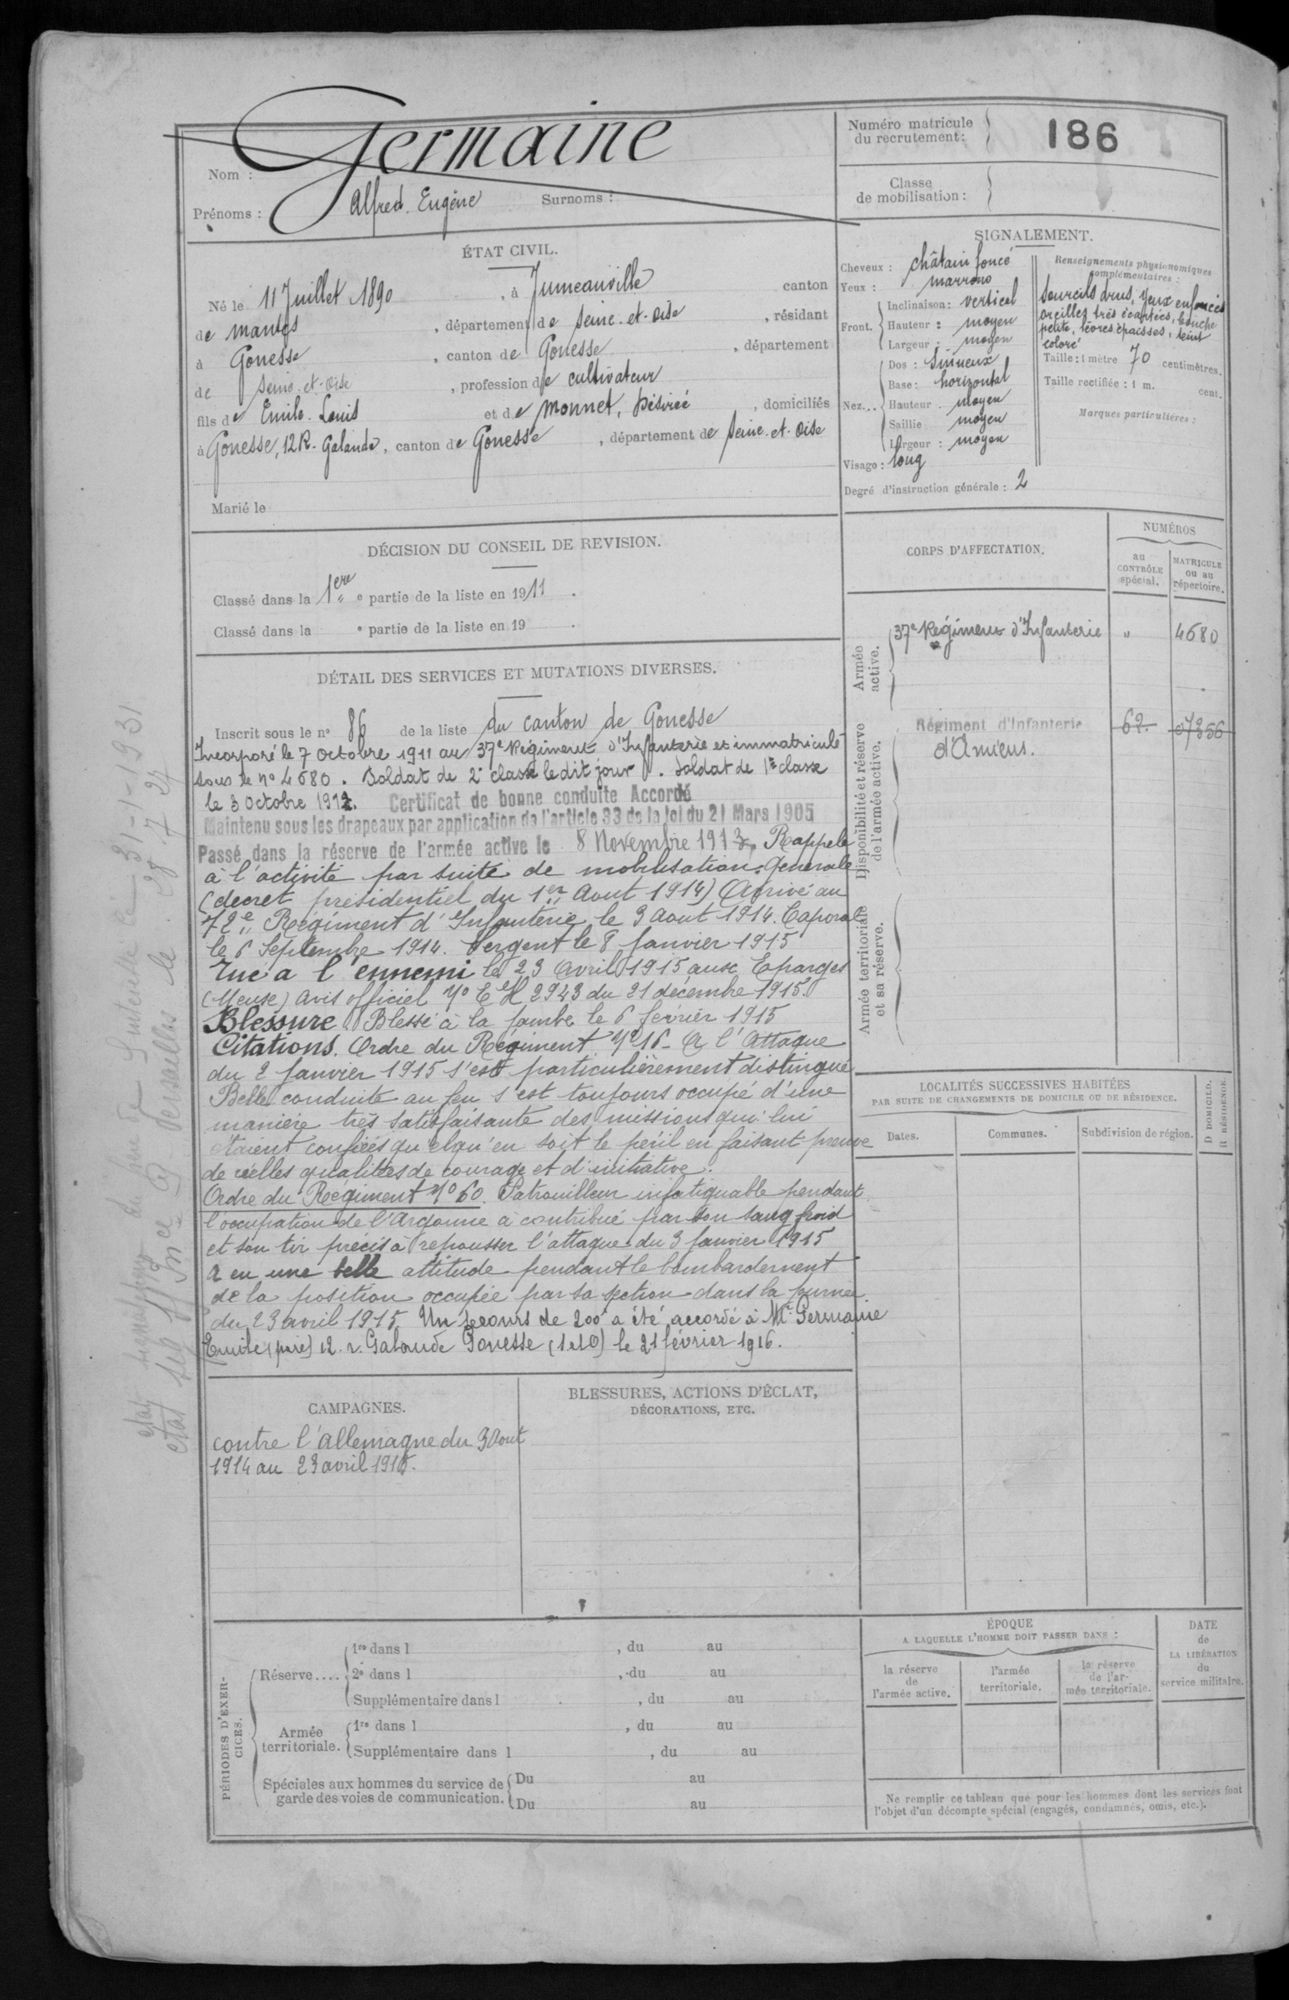 Nom : Germaine
Prénoms : Alfred Eugène Surnoms :
Numéro matricule du recrutement : 186
Classe de mobilisation :
ÉTAT CIVIL.
Né le 11 Juillet 1890, à Jumeauville canton
de Mantes, département de Seine-et-Oise, résidant
à Gonesse, canton de Gonesse, département
de Seine-et-Oise, profession de cultivateur
fils de Emile Louis et de Monnet, Désirée, domiciliés
à Gonesse, 12 R. Galande, canton de Gonesse, département de Seine-et-Oise
Marié le
SIGNALEMENT.
Cheveux : châtain foncé
Yeux : marrons
Front. Inclinaison : vertical
Hauteur : moyen
Largeur : moyen
Nez... Dos : Sinueux
Base : horizontal
Hauteur : moyen
Saillie : moyen
Largeur : moyen
Visage : long
Degré d'instruction générale : 2
Renseignements physionomiques complémentaires :
Sourcils drus, yeux enfoncés
oreilles très écartées, bouche
petite, lèvres épaisses, teint
coloré
Taille : 1 mètre 70 centimètres.
Taille rectifiée : 1 m. cent.
Marques particulières :
DÉCISION DU CONSEIL DE REVISION.
Classé dans la 1ère partie de la liste en 1911.
Classé dans la e partie de la liste en 19 .
CORPS D'AFFECTATION.
NUMÉROS
au CONTRÔLE spécial.
MATRICULE ou au répertoire.
Armée active.
37e Régiment d'Infanterie " 4680
Disponibilité et réserve de l'armée active.
Régiment d'Infanterie 62 07356
d'Amiens.
Armée territoriale et sa réserve.
DÉTAIL DES SERVICES ET MUTATIONS DIVERSES.
Inscrit sous le n° 86 de la liste du canton de Gonesse
Incorporé le 7 Octobre 1911 au 37e Régiment d'Infanterie et immatriculé
sous le n° 4680. Soldat de 2e classe le dit jour. Soldat de 1re classe
le 3 octobre 1912. Certificat de bonne conduite Accordé
Maintenu sous les drapeaux par application de l'article 33 de la loi du 21 Mars 1905
Passé dans la réserve de l'armée active le 8 Novembre 1913, Rappelé
à l'activité par suite de mobilisation Generale
(decret présidentiel du 1er Aout 1914) Arrivé au
72e Régiment d'Infanterie le 3 Aout 1914. Caporal
le 6 Septembre 1914. Sergent le 8 Janvier 1915
Tué à l'ennemi le 23 Avril 1915 aux Eparges
(Meuse) Avis officiel No E H 2943 du 21 décembre 1915.
Blessure Blessé à la jambe le 6 fevrier 1915
Citations. Ordre du Régiment No 16 - A l'Attaque
du 2 Janvier 1915 s'est particulièrement distingué
Belle conduite au feu s'est toujours occupé d'une
manière très satisfaisante des missions qui lui
étaient confiées quelqu'en soit le péril en faisant preuve
de réelles qualités de courage et d'initiative.
Ordre du Régiment No 60. Patrouilleur infatiguable pendant
l'occupation de l'Argonne à contribué par son sang froid
et son tir précis à repousser l'attaque du 3 Janvier 1915
A eu une belle attitude pendant le bombardement
de la position occupée par sa section dans la journée
du 23 avril 1915. Un secours de 200f a été accordé à Mr Germaine
Emile (père) 12. r. Galande Gonesse (S et O) le 21 février 1916.
LOCALITÉS SUCCESSIVES HABITÉES
PAR SUITE DE CHANGEMENTS DE DOMICILE OU DE RÉSIDENCE.
Dates. Communes. Subdivision de région. D DOMICILE. R RÉSIDENCE.
CAMPAGNES.
contre l'Allemagne du 3 Aout
1914 au 23 avril 1915.
BLESSURES, ACTIONS D'ÉCLAT,
DÉCORATIONS, ETC.
PÉRIODES D'EXERCICES.
Réserve.... 1re dans l , du au
2e dans l , du au
Supplémentaire dans l , du au
Armée territoriale. 1re dans l , du au
Supplémentaire dans l , du au
Spéciales aux hommes du service de garde des voies de communication. Du au
Du au
ÉPOQUE
A LAQUELLE L'HOMME DOIT PASSER DANS :
la réserve de l'armée active.
l'armée territoriale.
la réserve de l'armée territoriale.
DATE de LA LIBÉRATION du service militaire.
Ne remplir ce tableau que pour les hommes dont les services font
l'objet d'un décompte spécial (engagés, condamnés, omis, etc.).